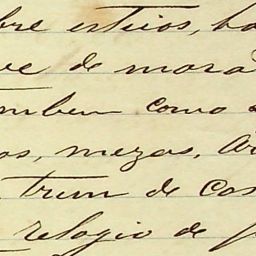 bre esteios, ha
ve de mora
tambem como
os, mezas, Ar
trem de cos
relogio de p